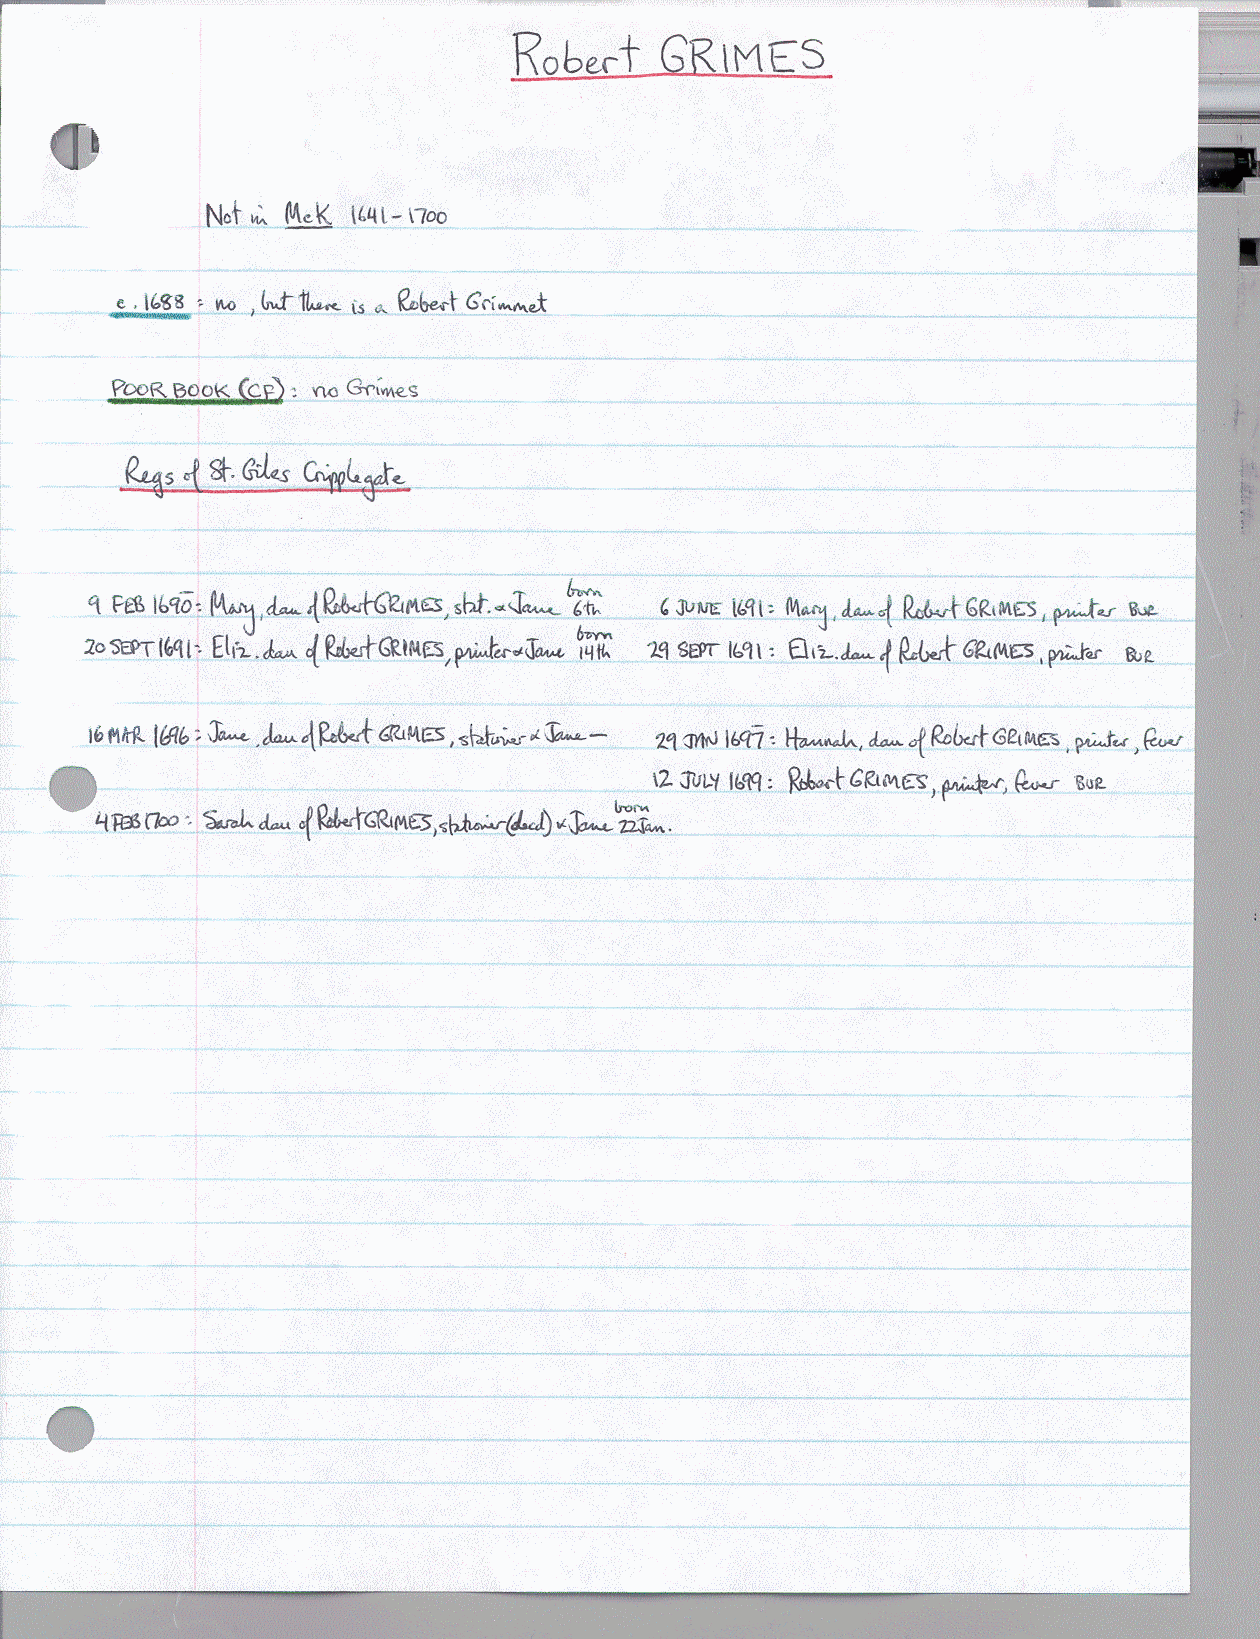 Robert GRIMES
Not in McK 1641-1700
c. 1688: no, but there is a Robert Grimmet
POOR BOOK (CF): no Grimes
Regs of St. Giles Cripplegate
9 FEB 1690: Mary, dau of Robert GRIMES, stat. & Jane born 6th 6 JUNE 1691: Mary, dau of Robert GRIMES, printer BUR
20 SEPT 1691: Eliz. dau of Robert GRIMES, printer & Jane born 14th 29 SEPT 1691: Eliz. dau of Robert GRIMES, printer BUR
16 MAR 1696: Jane, dau of Robert GRIMES, stationer & Jane — 29 JAN 1697: Hannah, dau of Robert GRIMES, printer, fever
12 JULY 1699: Robert GRIMES, printer, fever BUR
4 FEB 1700: Sarah dau of Robert GRIMES, stationer (decd) & Jane born 22 Jan.